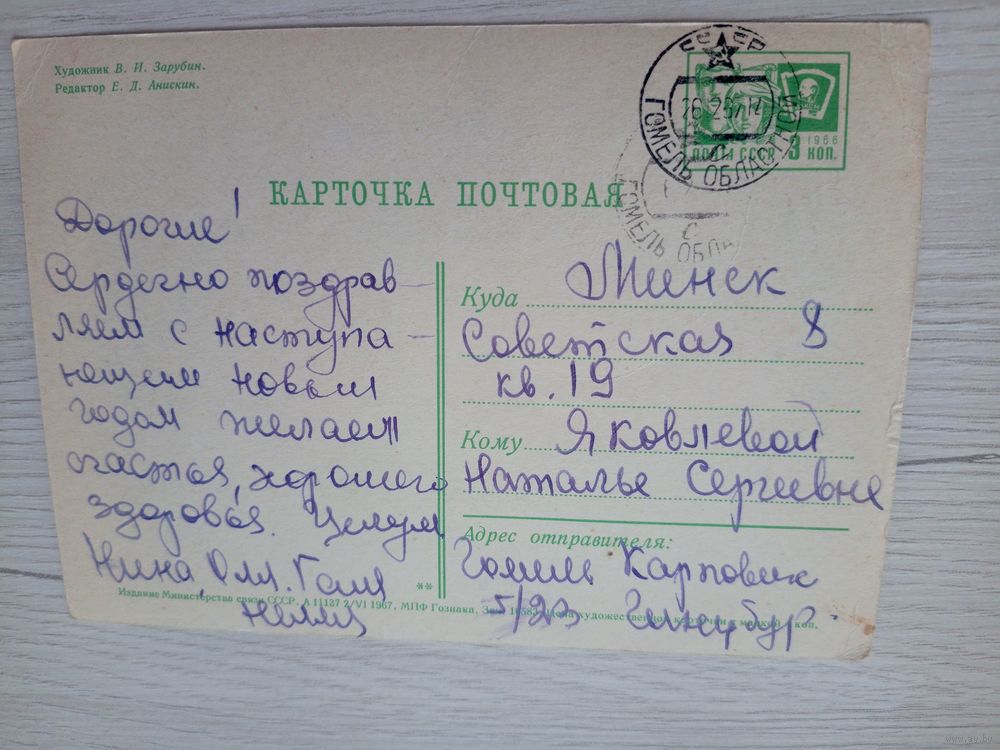 Художник В. И. Зарубин.
Редактор Е. Д. Анискин.
СССР
ГОМЕЛЬ ОБЛАСТНОЙ
С
ПОЧТА СССР
1966
3 КОП.
ГОМЕЛЬ ОБЛА
С
КАРТОЧКА ПОЧТОВАЯ
Дорогие!
Сердечно поздрав-
ляем с наступа-
ющем новым
годом желаем
счастья, хорошего
здоровья. Целуем
Нина, Оля. Галя
Нелля
Куда Минск
Советская 8
кв. 19
Кому Яковлевой
Наталье Сергеевне
Адрес отправителя:
Гомель Карповик
**
Издание Министерства связи СССР. А 11137 2/VI 1967. МПФ Гознака, Зак. художественной карточки с маркой коп.